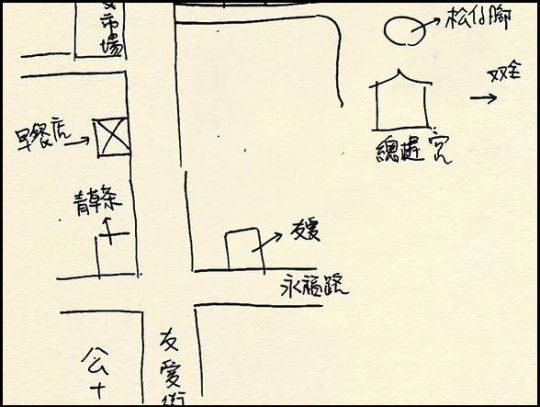 市場
松仔腳
總趕宮
早餐店
青草茶
友愛
永福路
公十
友愛街